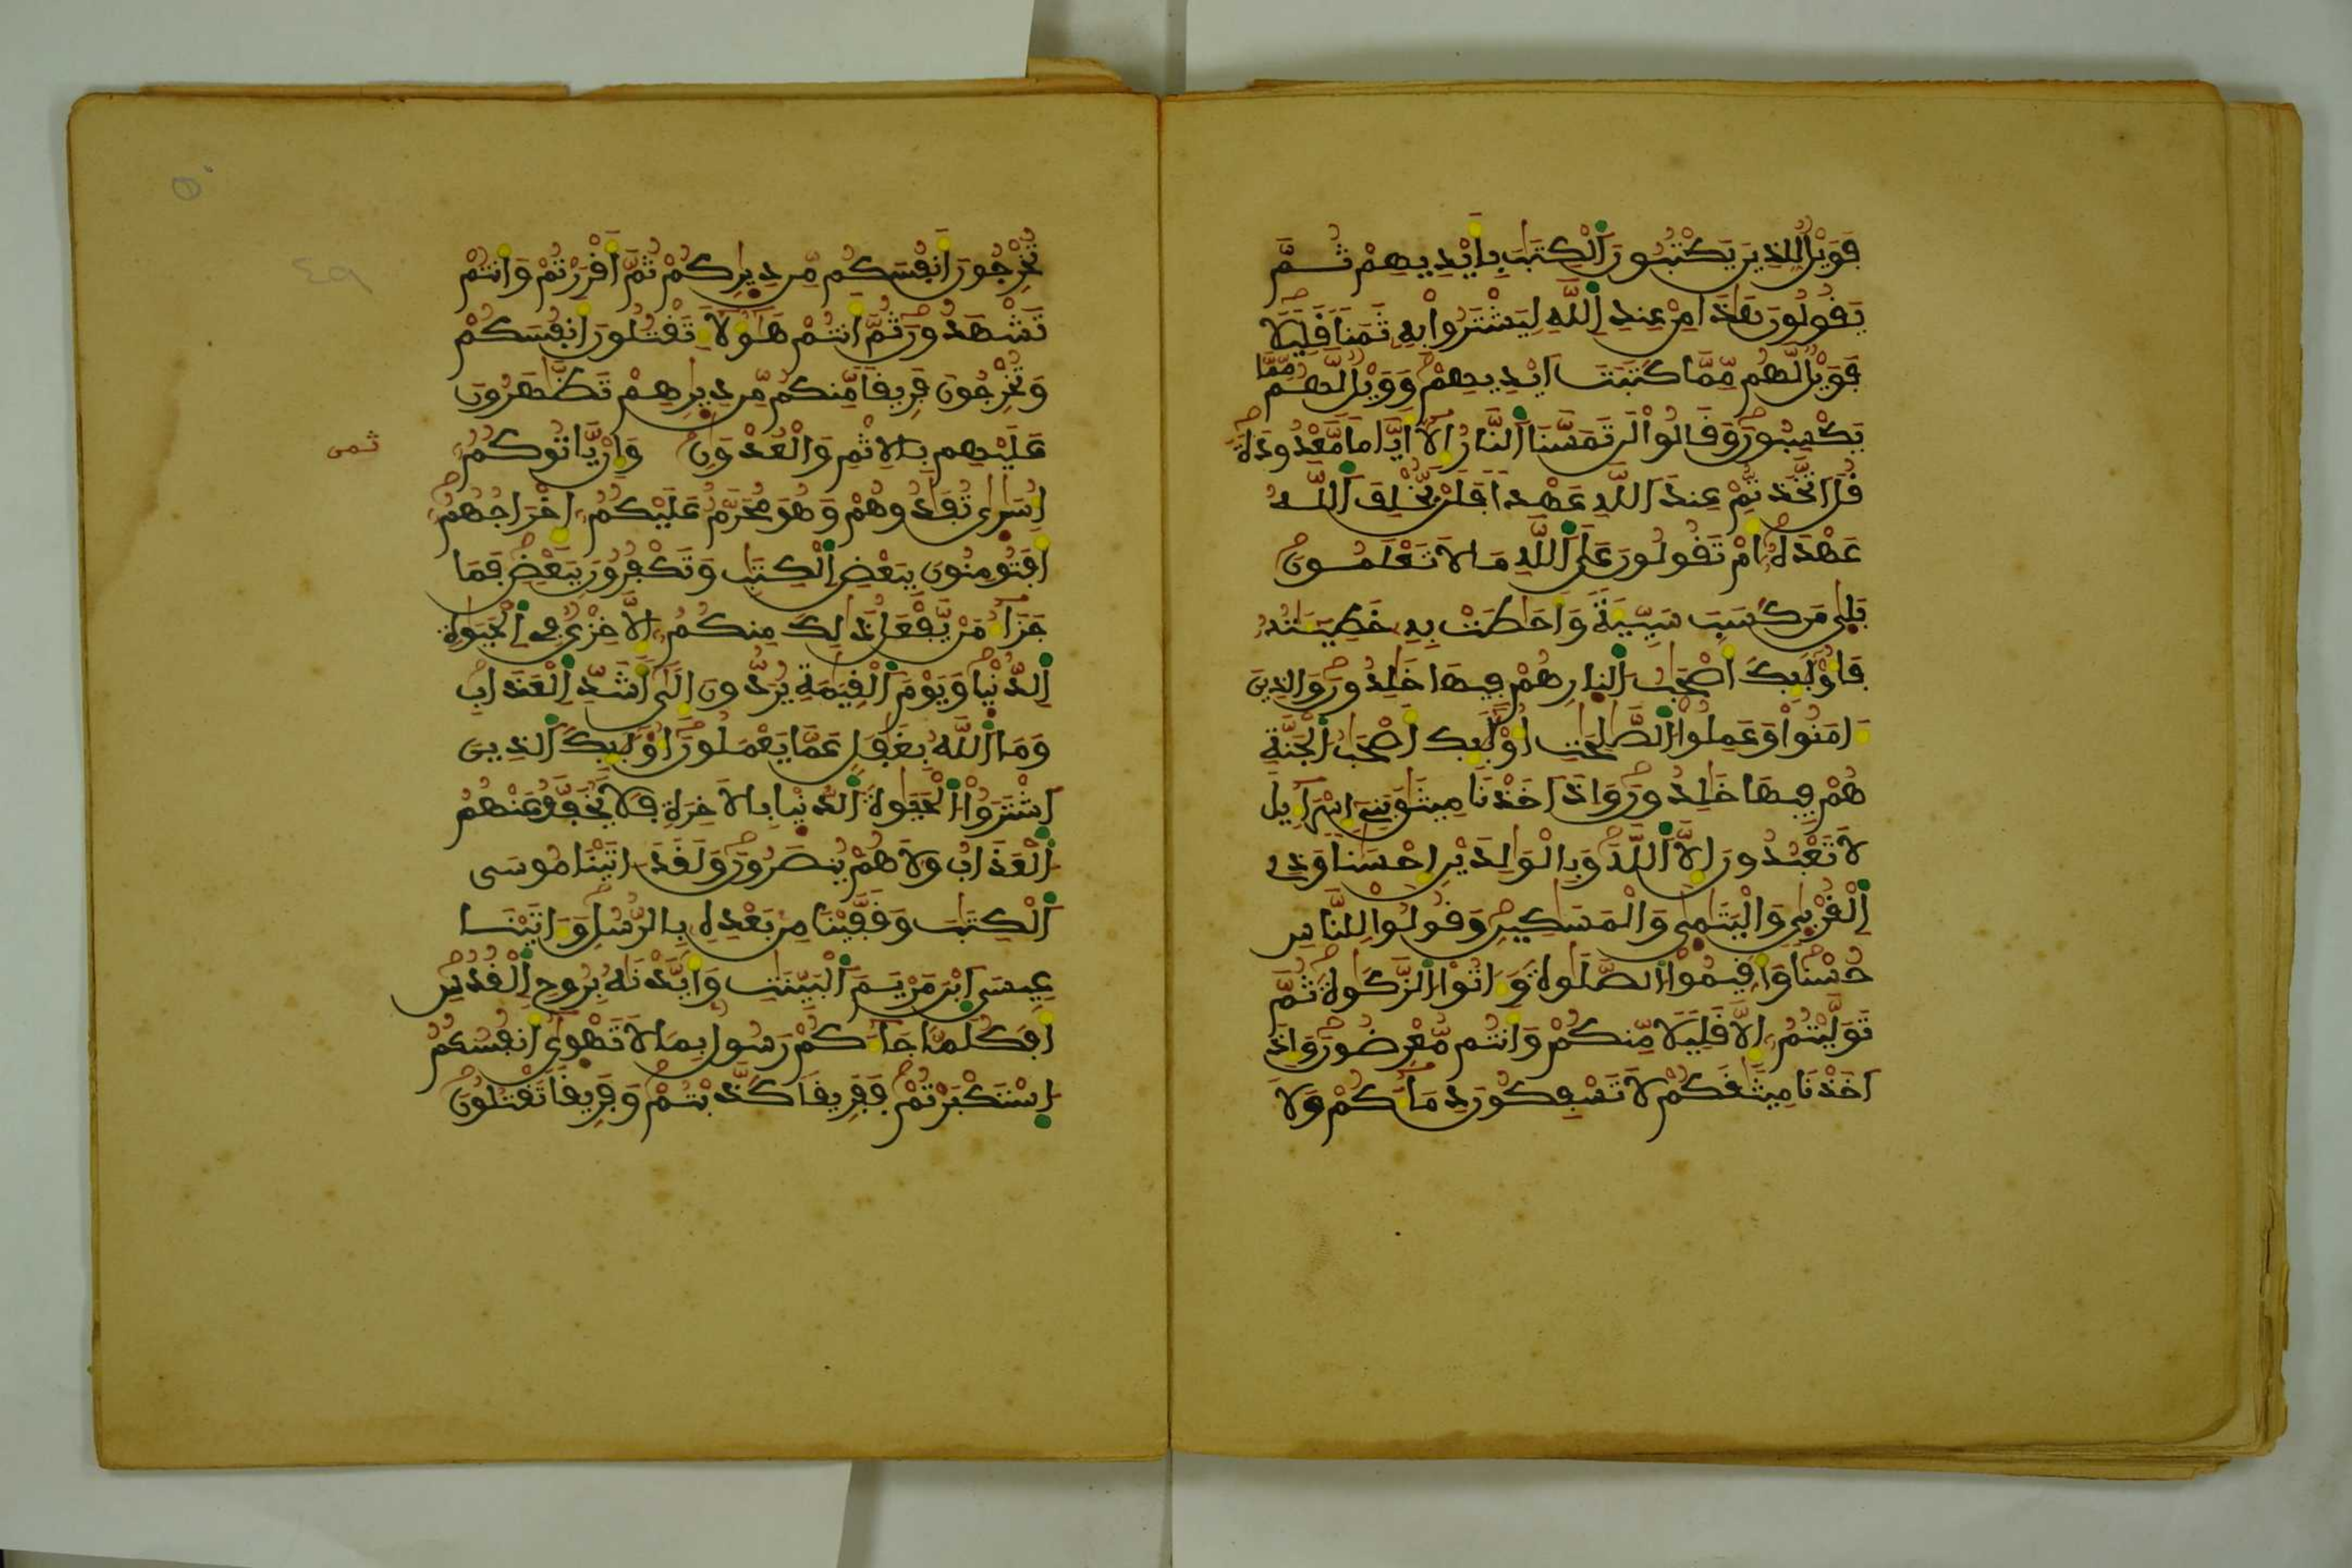 فَوَيْلٌ لِّلذِينَ يَكْتُبُونَ اَلْكِتَٰبَ بِأَيْدِيهِمْ ثُمَّ
يَقُولُونَ هَٰذَا مِنْ عِندِ اِللَّهِ لِيَشْتَرُوا۟ بِهِۦ ثَمَنًا قَلِيلًا
فَوَيْلٌ لَّهُم مِّمَّا كَتَبَتَ اَيْدِيهِمْ وَوَيْلٌ لَّهُم مِّمَّا
يَكْسِبُونَ وَقَالُوا۟ لَن تَمَسَّنَا اَلنَّارُ إِلَّآ أَيَّامًا مَّعْدُودَةً
قُلَ اَتَّخَذتُّمْ عِندَ اَللَّهِ عَهْدًا فَلَنْ يُّخْلِفَ اَللَّهُ
عَهْدَهُۥٓ أَمْ تَقُولُونَ عَلَى اَللَّهِ مَا لَا تَعْلَمُونَ
بَلَىٰ مَن كَسَبَ سَيِّئَةً وَأَحَٰطَتْ بِهِۦ خَطِيٓـَٰٔتُهُۥ
فَأُو۟لَٰٓئِكَ أَصْحَٰبُ اُلنّارِ هُمْ فِيهَا خَٰلِدُونَ وَالذِينَ
ءَامَنُوا۟ وَعَمِلُوا۟ اُلصَّٰلِحَٰتِ أُو۟لَٰٓئِكَ أَصْحَٰبُ اُلْجَنَّةِ
هُمْ فِيهَا خَٰلِدُونَ وَإِذَ اَخَذْنَا مِيثَٰقَ بَنِىٓ إِسْرَآءِيلَ
لَا تَعْبُدُونَ إِلَّا اَللَّهَ وَبِالْوَٰلِدَيْنِ إِحْسَٰنًا وَذِى
اِلْقُرْبَىٰ وَالْيَتَٰمَىٰ وَالْمَسَٰكِينِ وَقُولُوا۟ لِلنَّاسِ
حُسْنًا وَأَقِيمُوا۟ اُلصَّلَوٰةَ وَءَاتُوا۟ اُلزَّكَوٰةَ ثُمَّ
تَوَلَّيْتُمُۥٓ إِلَّا قَلِيلًا مِّنكُمْ وَأَنتُم مُّعْرِضُونَ وَإِذَ
اَخَذْنَا مِيثَٰقَكُمْ لَا تَسْفِكُونَ دِمَآءَكُمْ وَلَا
تُخْرِجُونَ أَنفُسَكُم مِّن دِيٰرِكُمْ ثُمَّ أَقْرَرْتُمْ وَأَنتُمْ
تَشْهَدُونَ ثُمَّ أَنتُمْ هَٰٓؤُلَآءِ تَقْتُلُونَ أَنفُسَكُمْ
وَتُخْرِجُونَ فَرِيقًا مِّنكُم مِّن دِيٰرِهِمْ تَظَّٰهَرُونَ
عَلَيْهِم بِالْإِثْمِ وَالْعُدْوَٰنِ وَإِنْ يَّاتُوكُمُۥٓ
ثمن
أُسَٰرَىٰ تُفَٰدُوهُمْ وَهُوَ مُحَرَّمٌ عَلَيْكُمُۥٓ إِخْرَاجُهُمُۥٓ
أَفَتُومِنُونَ بِبَعْضِ اِلْكِتَٰبِ وَتَكْفُرُونَ بِبَعْضٍ فَمَا
جَزَآءُ مَنْ يَّفْعَلُ ذَٰلِكَ مِنكُمُۥٓ إِلَّا خِزْىٌ فِى اِلْحَيَوٰةِ
اِلدُّنْيَا وَيَوْمَ اَلْقِيَٰمَةِ يُرَدُّونَ إِلَىٰٓ أَشَدِّ اِلْعَذَابِ
وَمَا اَللَّهُ بِغَٰفِلٍ عَمَّا يَعْمَلُونَ أُو۟لَٰٓئِكَ اَلذِينَ
اَشْتَرَوُا۟ اُلْحَيَوٰةَ اَلدُّنْيَا بِالْءَاخِرَةِ فَلَا يُخَفَّفُ عَنْهُمُ
اُلْعَذَابُ وَلَا هُمْ يُنصَرُونَ وَلَقَدَ ءَاتَيْنَا مُوسَى
اَلْكِتَٰبَ وَقَفَّيْنَا مِنۢ بَعْدِهِۦ بِالرُّسُلِ وَءَاتَيْنَا
عِيسَى اَبْنَ مَرْيَمَ اَلْبَيِّنَٰتِ وَأَيَّدْنَٰهُ بِرُوحِ اِلْقُدُسِ
أَفَكُلَّمَا جَآءَكُمْ رَسُولٌۢ بِمَا لَا تَهْوَىٰٓ أَنفُسُكُمُ
اُسْتَكْبَرْتُمْ فَفَرِيقًا كَذَّبْتُمْ وَفَرِيقًا تَقْتُلُونَ